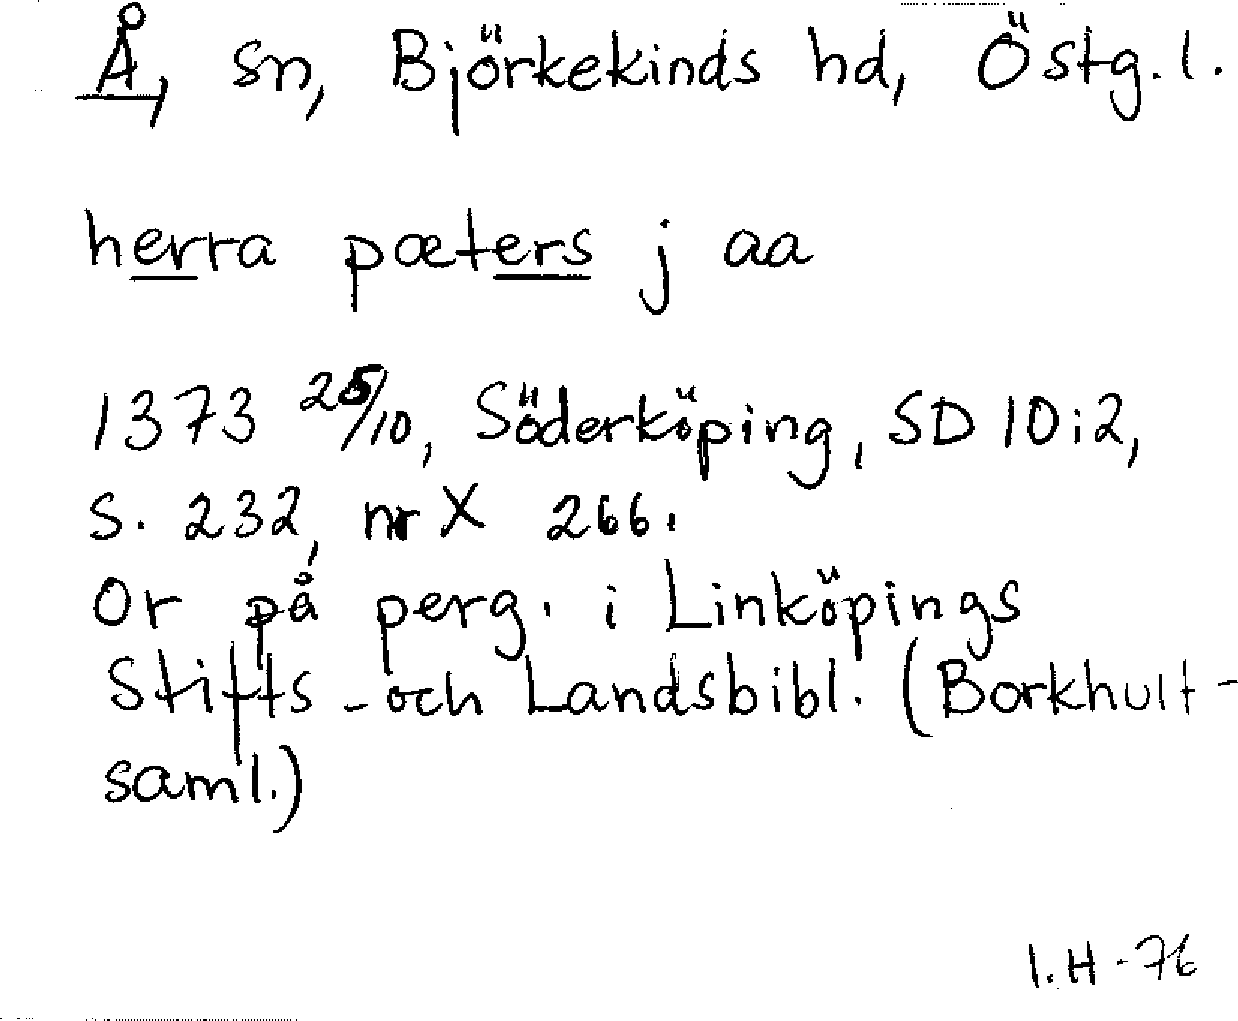 Å, sn, Björkekinds hd, Östg. l.
herra pæters j aa
1373 25/10, Söderköping, SD 10:2,
S. 232, nr X 266.
Or på perg. i Linköpings
Stifts- och Landsbibl. (Borkhult-
saml.)
I.H-76